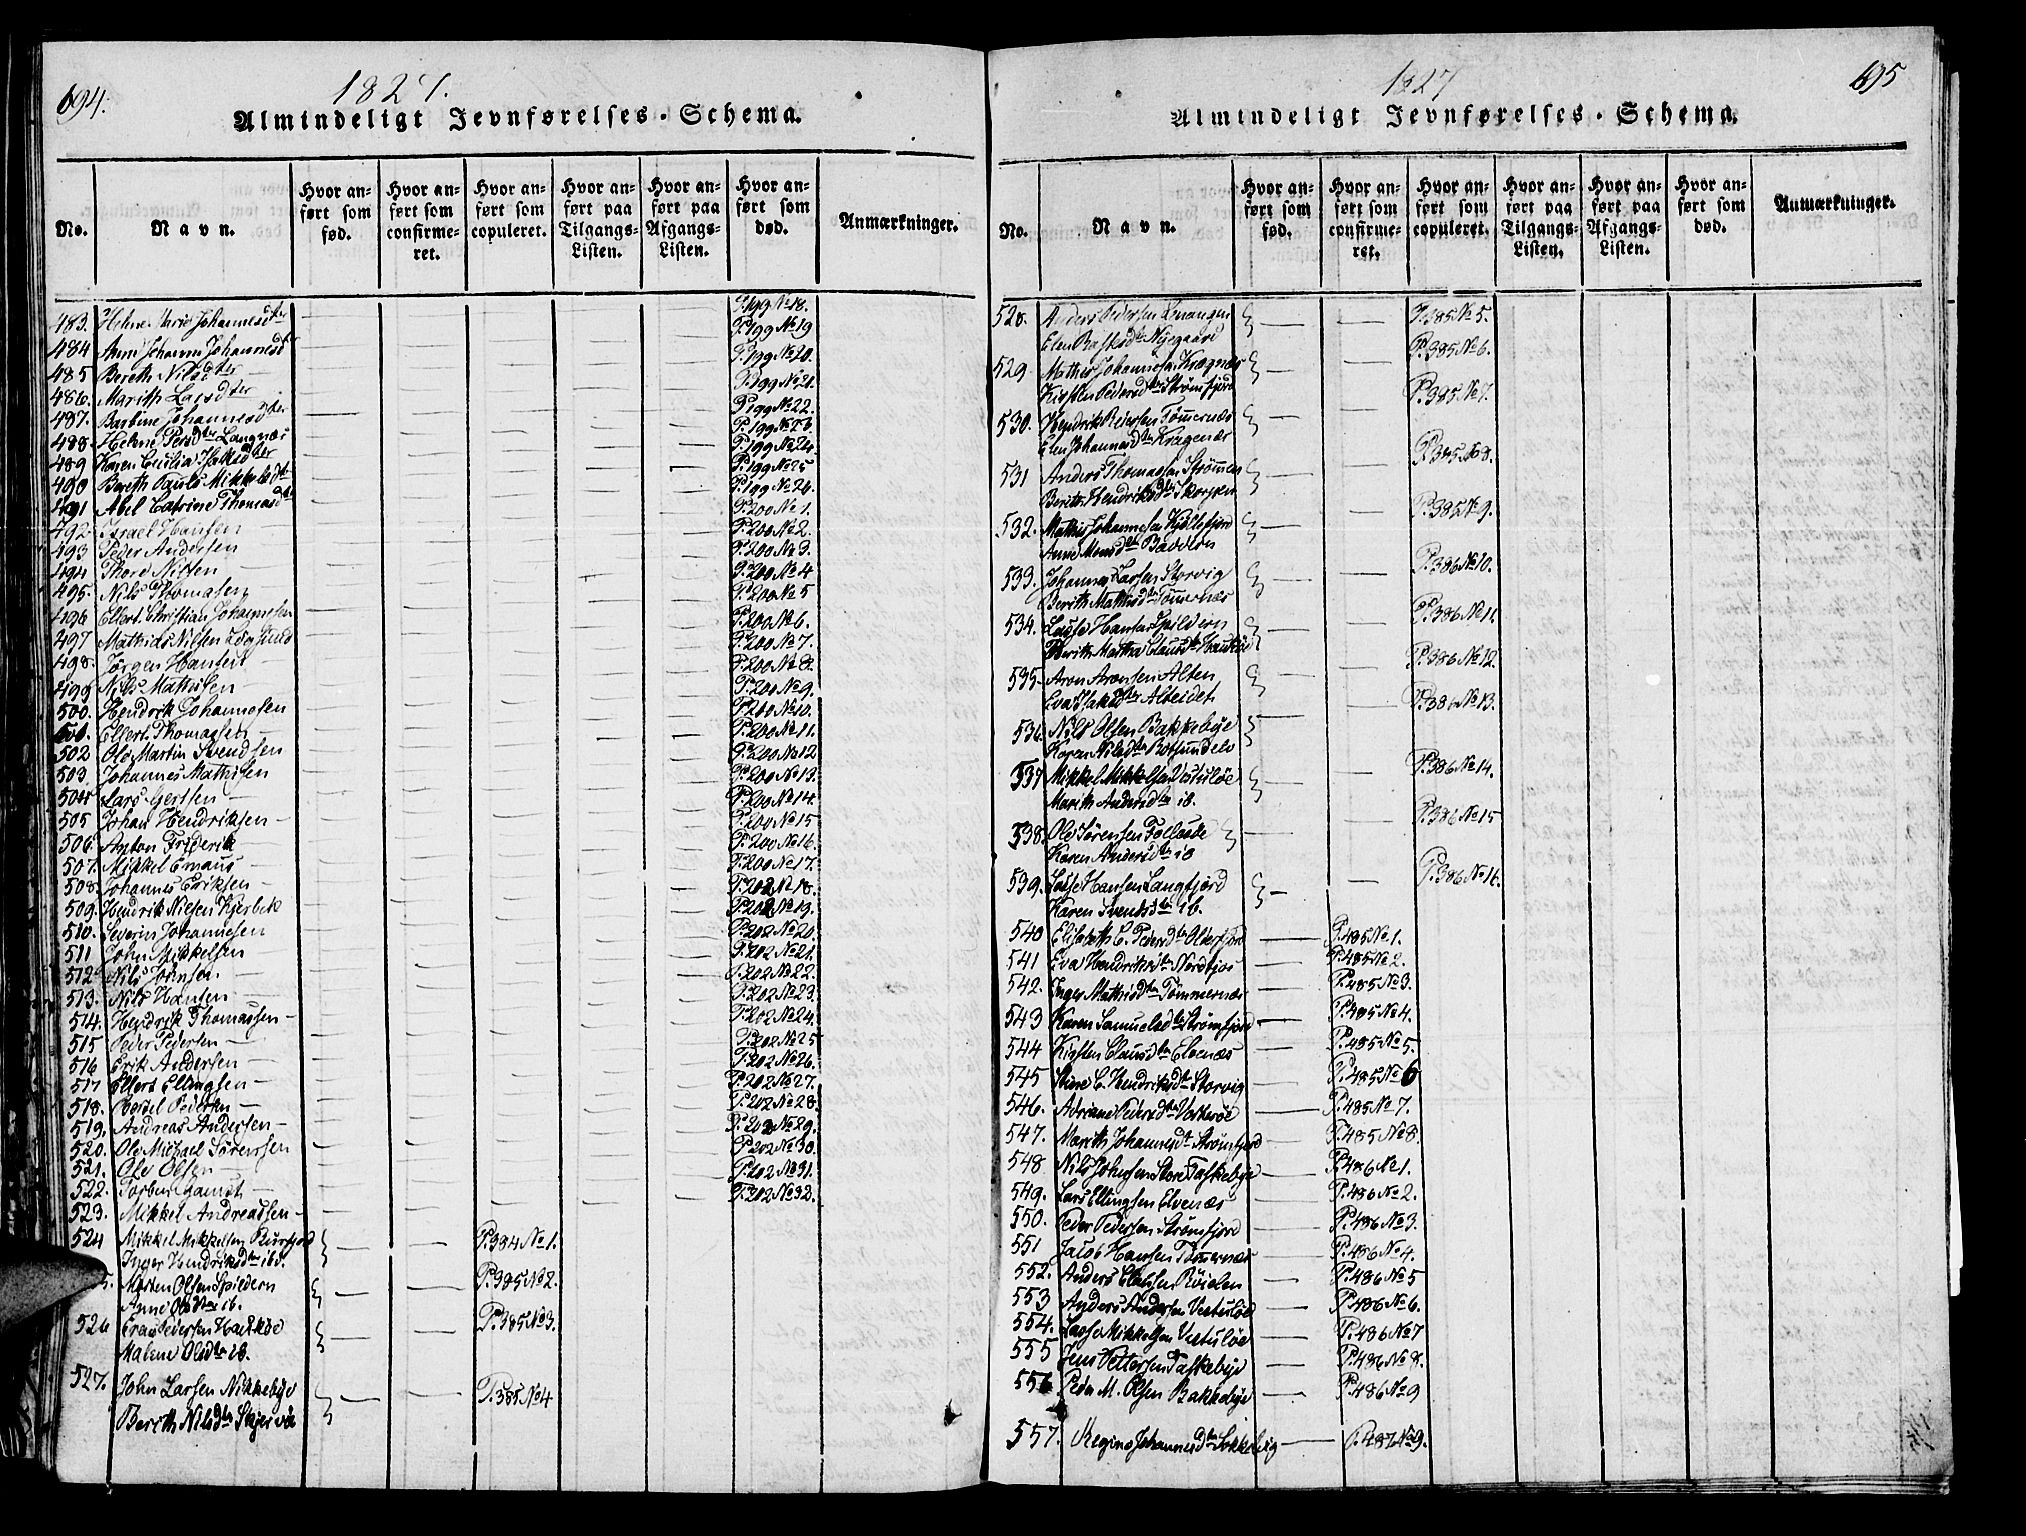 694.
1827.
Almindeligt Jevnførelses-Schema.
No.
Navn.
Hvor anført som fød.
Hvor anført som confirmeret.
Hvor anført som copuleret.
Hvor anført paa Tilgangs-Listen.
Hvor anført paa Afgangs-Listen.
Hvor anført som død.
Anmærkninger.
483. Helene Marie Johannesdter P.199 No 18.
484 Johannesdter P.199 No 19
485 Bereth Nilsdter P.199 No 20.
486. Marith Larsdter P.199 No 21.
487. Barbine Johannesdter P.199 No 22.
488 Helene Persdter Langnæs P.199 No 23
489 Karen Cecilia Isaksdter P.199 No 24.
490 Bereth Mikkelsdtr P.199 No 25
491 Abel Catrine Thomasdtr P.199 No 26.
492 Israel Hansen P.200 No 1.
493 Peder Andersen P.200 No 2.
494 Thore Nilsen P.200 No 3.
495. Nils Thomasen P.200 No 4
496 Ellert Christian Johannesen P.200 No 5
497 Mathias Nilsen P.200 No 6.
498. Jørgen Hansen P.200 No 7.
499 Nils Mathisen P.200 No 8.
500. Hendrik Johannesen P.200 No 9.
501. Ellert Thomassen P.200 No 10.
502 Ole Martin Svendsen P.200 No 11.
503 Johannes Mathisen P.200 No 12
504 Lars Gertsen P.200 No 13.
505 Johan Hendriksen P.200 No 14.
506. Anton Friderik P.200 No 15
507. Mikkel Emaus P.200 No 16.
508. Johannes Eriksen P.200 No 17.
509. Hendrik Nilsen P.202 No 18.
510. Severin Johannesen P.202 No 19.
511 John Mikkelsen P.202 No 20.
512 Nils Johnsen. P.202 No 21.
513. Nils Hansen P.202 No 22.
514. Hendrik Thomassen P.202 No 23.
515 Peder Pedersen P.202 No 24.
516 Erik Andersen P.202 No 25
517 Ellert Ellingsen P.202 No 26.
518. Pedersen P.202 No 27.
519. Andreas Andersen P.202 No 28.
520. Ole Michael Sørensen P.202 No 29.
521. Ole Olsen P.202 No 30.
522. P.202 No 31.
523. Mikkel Andreassen P.202 No 32.
524 Mikkel Mikkelsen P.384 No 1.
Inger Hendriksdtr ibd.
5. Morten Olsen Spildern P.385 No 2.
Anne Olsdtr ib.
526 Pedersen P.385 No 3.
Malene Olsdtr ib.
527. John Larsen Nikkebye P.385 No 4
Berith Nilsdtr Skjervøe
695
1827
Almindeligt Jevnførelses-Schema.
No.
Navn.
Hvor anført som fød.
Hvor anført som confirmeret.
Hvor anført som copuleret.
Hvor anført paa Tilgangs-Listen.
Hvor anført paa Afgangs-Listen.
Hvor anført som død.
Anmærkninger.
528. Anders Pedersen P.385 No 5.
Elen
529 Mathis Johannesen P.385 No 6.
Kirsten Pedersdtr Strømfjord
530. Hendrik Tømernæs P.385 No 7.
Elen Johannesdtr Kragenæs
531 Anders Thomassen P.385 No 8.
Berith Hendriksdtr
532. Mathis Johannesen P.385 No 9.
Anne Monsdtr Badderen
533. Johannes Larsen Storvig P.386 No 10.
Berith Mathisdtr Tømernæs
534. Lasse Hansen Spildern P.386 No 11.
Berith Martha Clausdtr
535. Aron Aronsen Alten P.386 No 12.
Eva Isaksdter Alteidet
536. Nils Olsen Bakkebye P.386 No 13.
Karen Nilsdtr
537 Mikkel Mikkelsen P.386 No 14.
Marith Andersdtr ib.
538. Ole Sørensen P.386 No 15
Karen Andersdtr ib
539. Lasse Hansen Langfjord P.386 No 16.
Karen Svendsdtr ib.
540 Elisabeth C. Pedersdtr P.485 No 1.
541 Eva Hendriksdtr P.485 No 2.
542. Inger Mathisdtr Tømmernæs P.485 No 3.
543 Karen Samuelsdtr Strømfjord P.485 No 4.
544 Kirsten Clausdtr Elvenæs P.485 No 5.
545 C. Hendriksdtr Storvig P.485 No 6
546. Adriane P.485 No 7.
547. Marith Johannesdtr Strømfjord P.485 No 8.
548 Nils Johnsen P.486 No 1.
549. Lars Ellingsen Elvenæs P.486 No 2.
550. Peder Pedersen Strømfjord P.486 No 3.
551 Jacob Hansen Tømernæs P.486 No 4.
552. Anders P.486 No 5
553 Anders Andersen P.486 No 6.
554. Lasse Mikkelsen P.486 No 7
555 Jens P.486 No 8.
556 Peder M. Olsen Bakkebye P.486 No 9
557. Johannesdtr P.487 No 9.